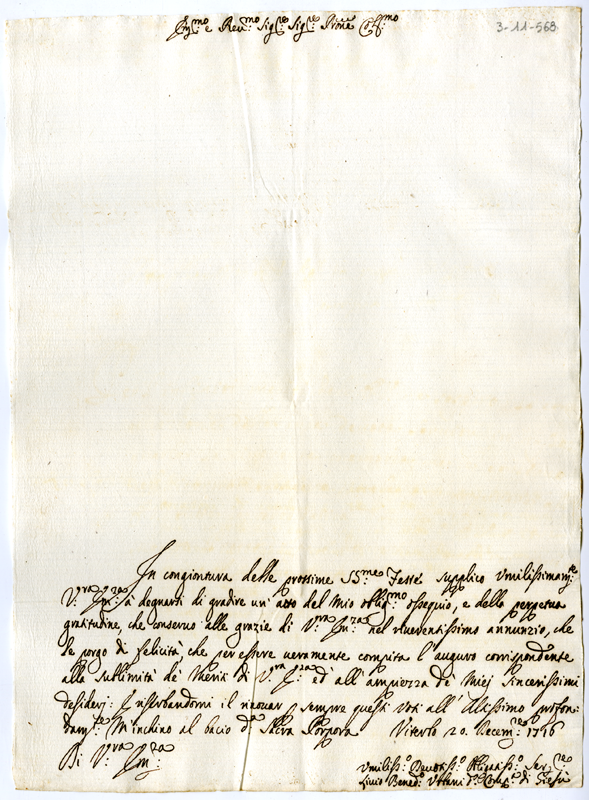 Em.mo e Rev.mo Sig.re Sig.re Prone Col.mo
3-11-568
In congiontura delle prossime SS.me Feste supplico Vmilissimam.te
V.ra Em.za à degnarsi di gradire un' atto del Mio oblig.mo ossequio, e della perpetua
gratitudine, che conservo alle grazie di V.ra Em.za nel riverentissimo annunzio, che
le porgo di felicità, che per essere veramente compita l'auguro corrispondente
alla sublimità de' Meriti di V.ra E.za ed' all' ampiezza de' Miej sincerissimi
desiderj: E riserbandomi il rinovar sempre questi voti all' Altissimo profon-
dam.te M'inchino al bacio d.a Sacra Porpora Viterbo 20. Decem.re 1716
Di V.ra Em.za
Vmiliss.o Devotiss.o Obligatiss.o Ser.re
Benedº di Giesù